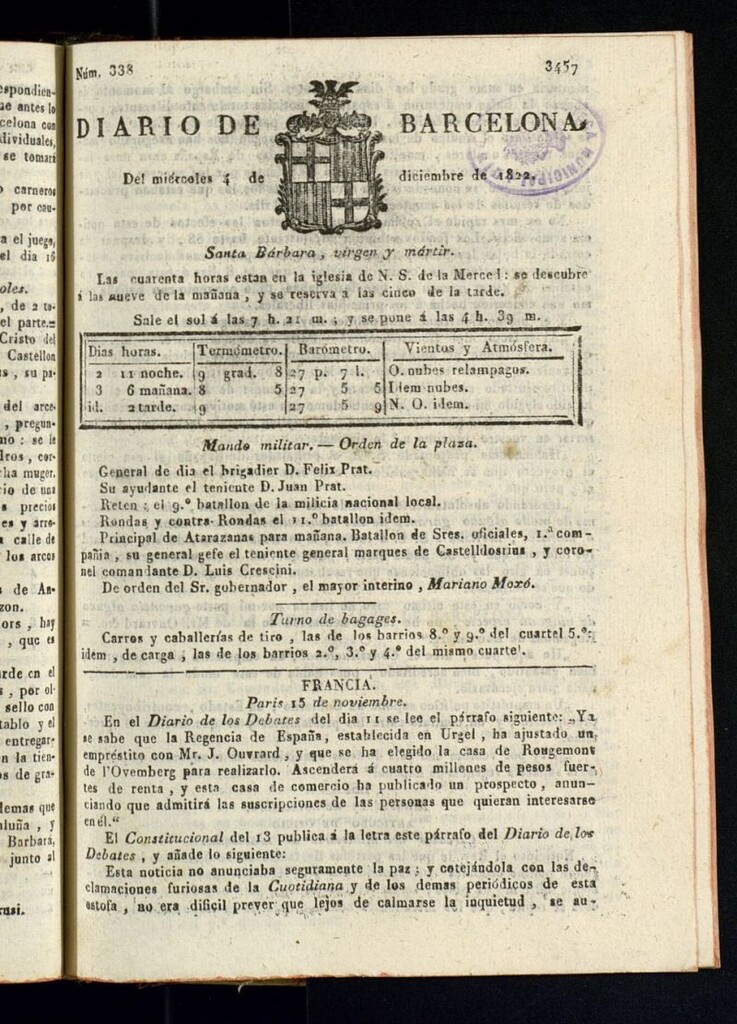 espondien-
ue antes lo
celona con
dividuales,
se tomará
carneros
por cau-
a el juego,
el dia 16
oles.
, de 2 to-
el parte.=
Cristo del
Castellon
s, su pa-
del arce-
, pregun-
no: se le
dros, cor-
ha muger.
rio de una
precios
es y arro-
calle de
los arcos
de An-
zon.
ors, hay
, que es
arde en el
s, por ol-
sello con
tablo y el
entregar-
n la tien-
os de gra-
demas que
aluña, y
Barbara,
junto al
rusi.
Núm. 338 3457
DIARIO DE BARCELONA,
Del miércoles 4 de diciembre de 1822.
MUNICIPAL
Santa Bárbara, vírgen y mártir.
Las cuarenta horas estan en la iglesia de N. S. de la Merced: se descubre
á las nueve de la mañana, y se reserva á las cinco de la tarde.
Sale el sol á las 7 h. 21 m.; y se pone á las 4 h. 39 m.
Dias horas. Termómetro. Barómetro. Vientos y Atmósfera.
2 11 noche. 9 grad. 8 27 p. 7 l. O. nubes relampagos.
3 6 mañana. 8 5 27 5 5 Idem nubes.
id. 2 tarde. 9 27 5 9 N. O. idem.
Mando militar. — Orden de la plaza.
General de dia el brigadier D. Felix Prat.
Su ayudante el teniente D. Juan Prat.
Reten: el 9.º batallon de la milicia nacional local.
Rondas y contra-Rondas el 11.º batallon idem.
Principal de Atarazanas para mañana. Batallon de Sres. oficiales, 1.ª com-
pañia, su general gefe el teniente general marques de Castelldosrius, y coro-
nel comandante D. Luis Crescini.
De orden del Sr. gobernador, el mayor interino, Mariano Moxó.
Turno de bagages.
Carros y caballerías de tiro, las de los barrios 8.º y 9.º del cuartel 5.º:
idem, de carga, las de los barrios 2.º, 3.º y 4.º del mismo cuartel.
FRANCIA.
Paris 15 de noviembre.
En el Diario de los Debates del dia 11 se lee el párrafo siguiente: „Ya
se sabe que la Regencia de España, establecida en Urgel, ha ajustado un
empréstito con Mr. J. Ouvrard, y que se ha elegido la casa de Rougemont
de l'Ovemberg para realizarlo. Ascenderá á cuatro millones de pesos fuer-
tes de renta, y esta casa de comercio ha publicado un prospecto, anun-
ciando que admitirá las suscripciones de las personas que quieran interesarse
en él.“
El Constitucional del 13 publica á la letra este párrafo del Diario de los
Debates, y añade lo siguiente:
Esta noticia no anunciaba seguramente la paz; y cotejándola con las de-
clamaciones furiosas de la Cuotidiana y de los demas periódicos de esta
estofa, no era dificil prever que lejos de calmarse la inquietud, se au-